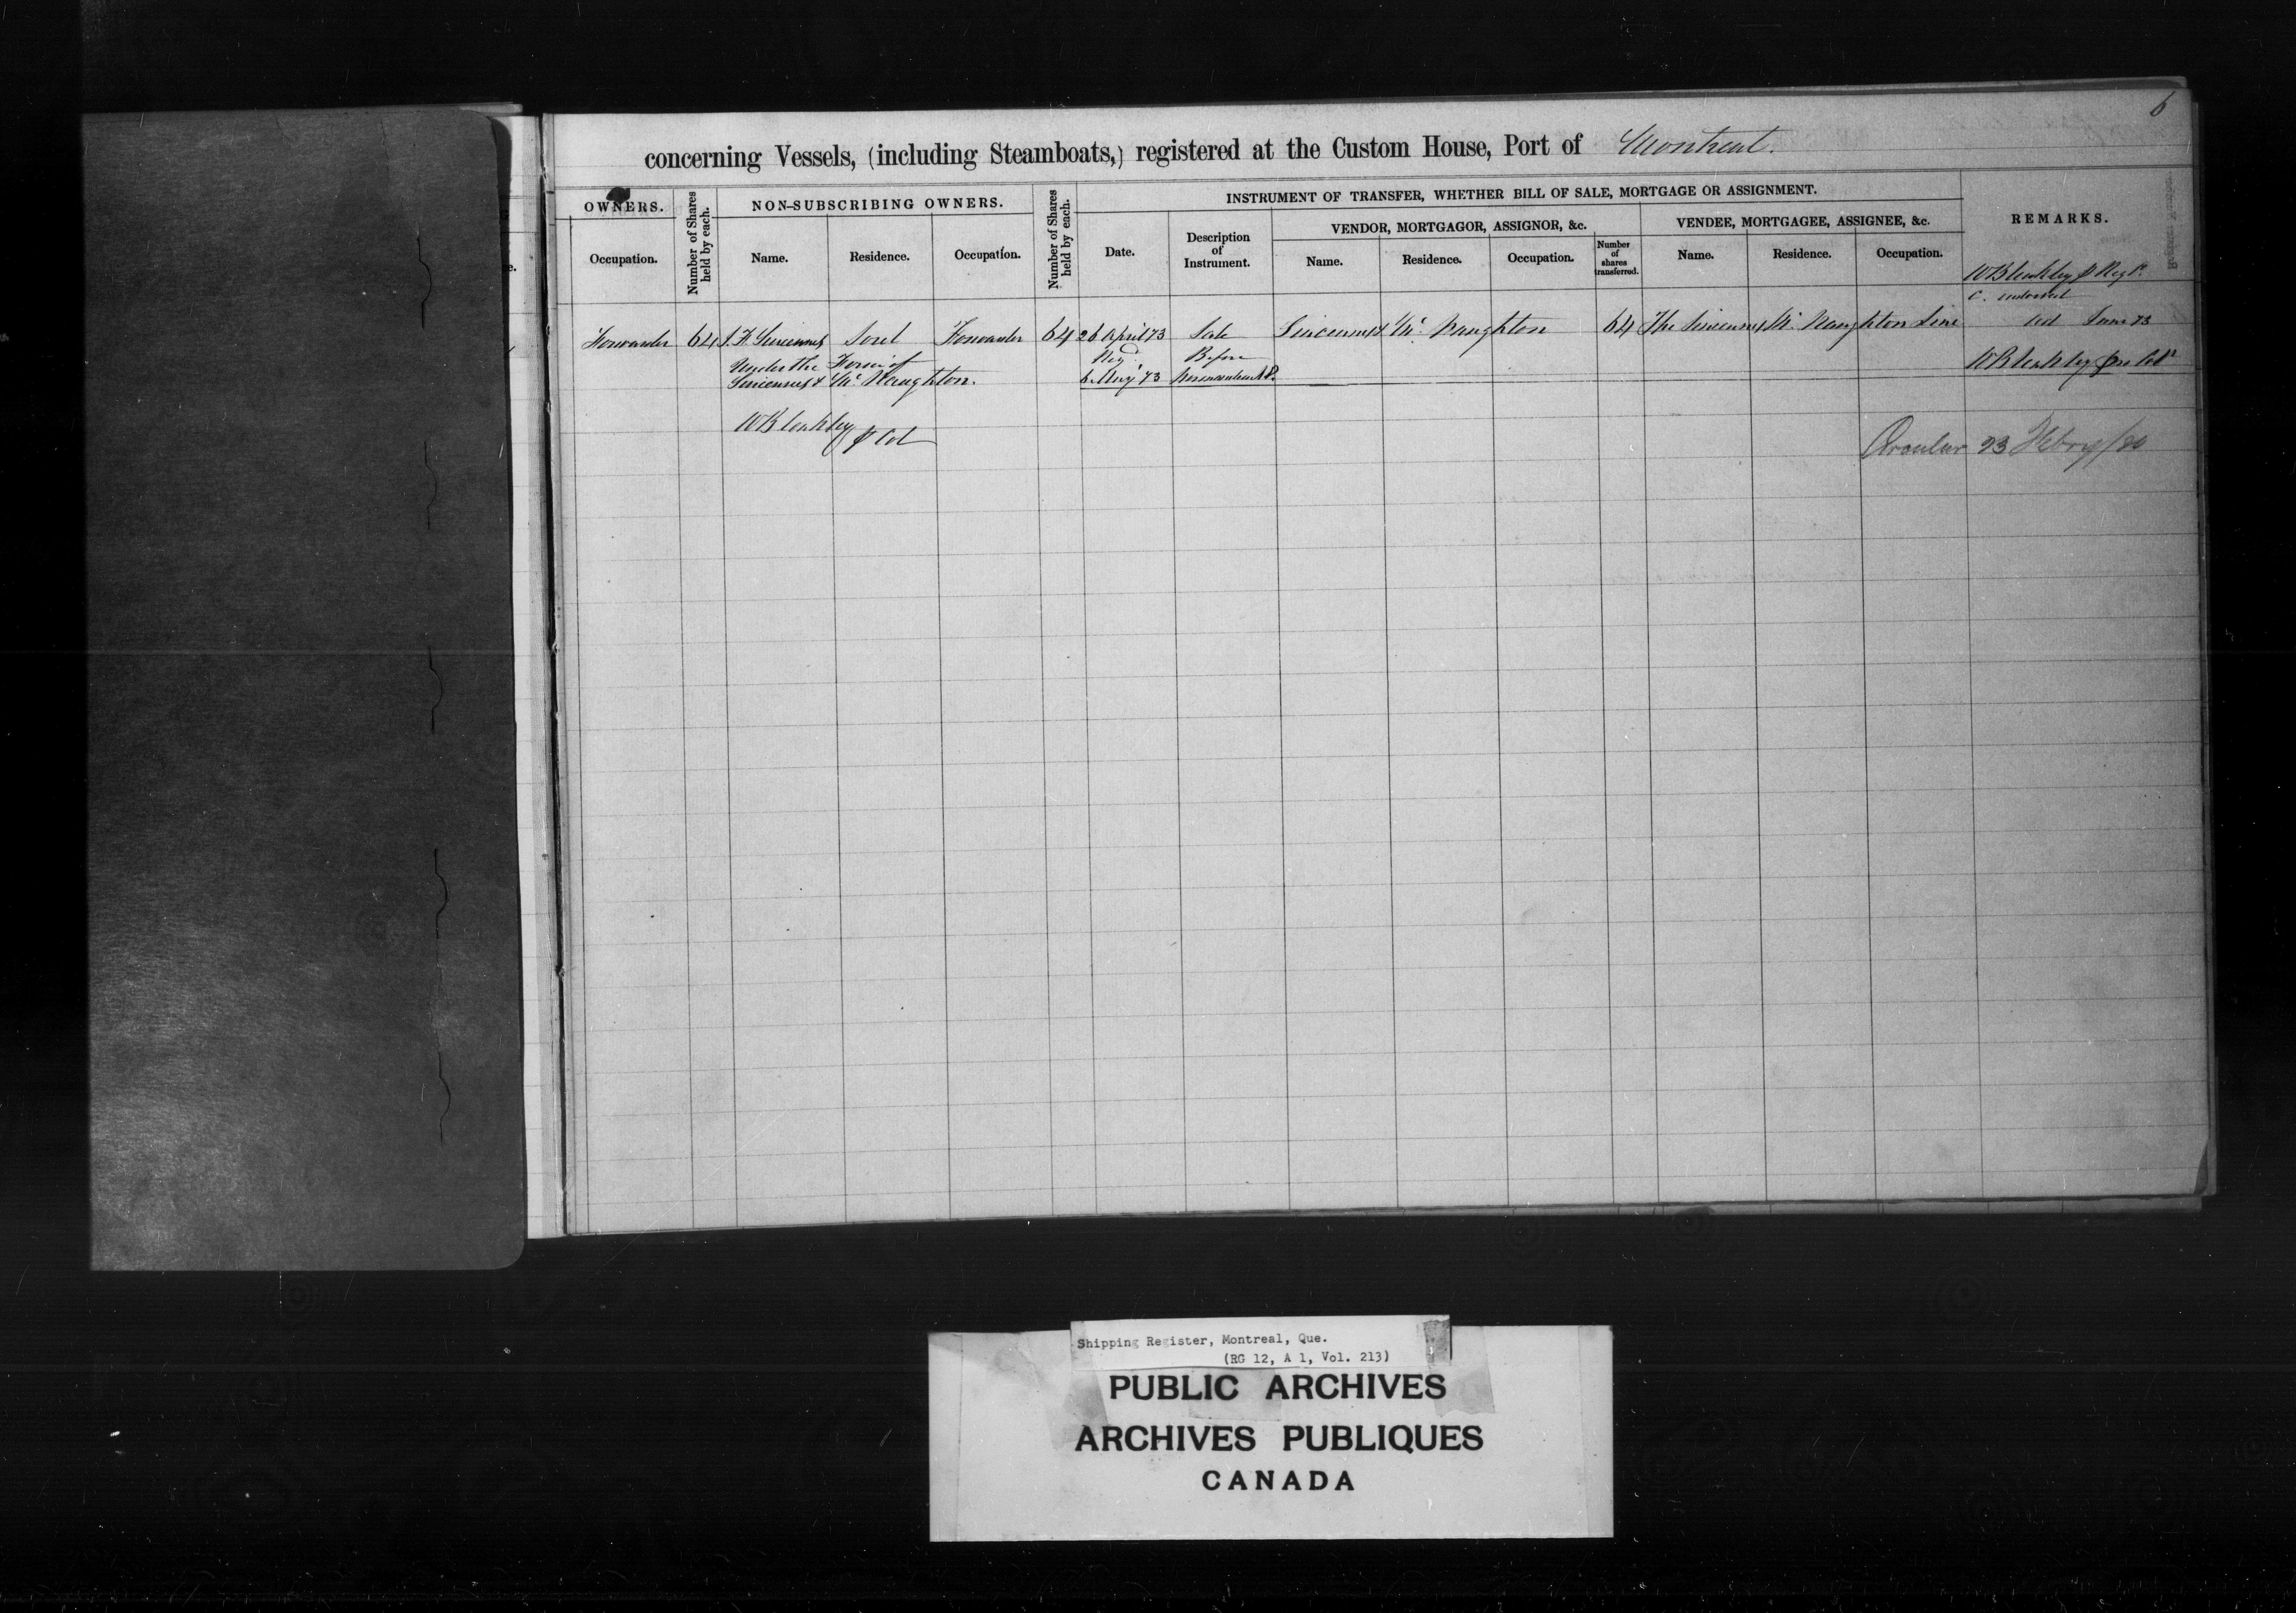 6
concerning Vessels, (including Steamboats,) registered at the Custom House, Port of Montreal.
OWNERS.
Number of Shares held by each.
NON-SUBSCRIBING OWNERS.
Number of Shares held by each.
INSTRUMENT OF TRANSFER, WHETHER BILL OF SALE, MORTGAGE OR ASSIGNMENT.
REMARKS.
VENDOR, MORTGAGOR, ASSIGNOR, &c.
VENDEE, MORTGAGEE, ASSIGNEE, &c.
Occupation.
Name.
Residence.
Occupation.
Date.
Description of Instrument.
Name.
Residence.
Occupation.
Number of shares transferred.
Name.
Residence.
Occupation.
W Bleakley p Regr.
C. endorsed
Forwarder 64 J. F. Sincennes Sorel Forwarder 64 26 April 73 Sale Sincennes & Mc Naughton 64 The Sincennes Mc Naughton Line
June 73
Under the Firm of
Regd.
Before
W Bleakley pro Colr
Sincennes & Mc Naughton.
6 Aug 73
W Bleakley p Col
Circular 23 Febry/80
Shipping Register, Montreal, Que.
(RG 12, A 1, Vol. 213)
PUBLIC ARCHIVES
ARCHIVES PUBLIQUES
CANADA